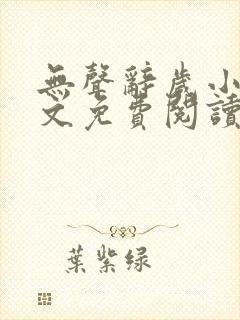 無聲辭歲小
文免費閱讀
葉紫绿